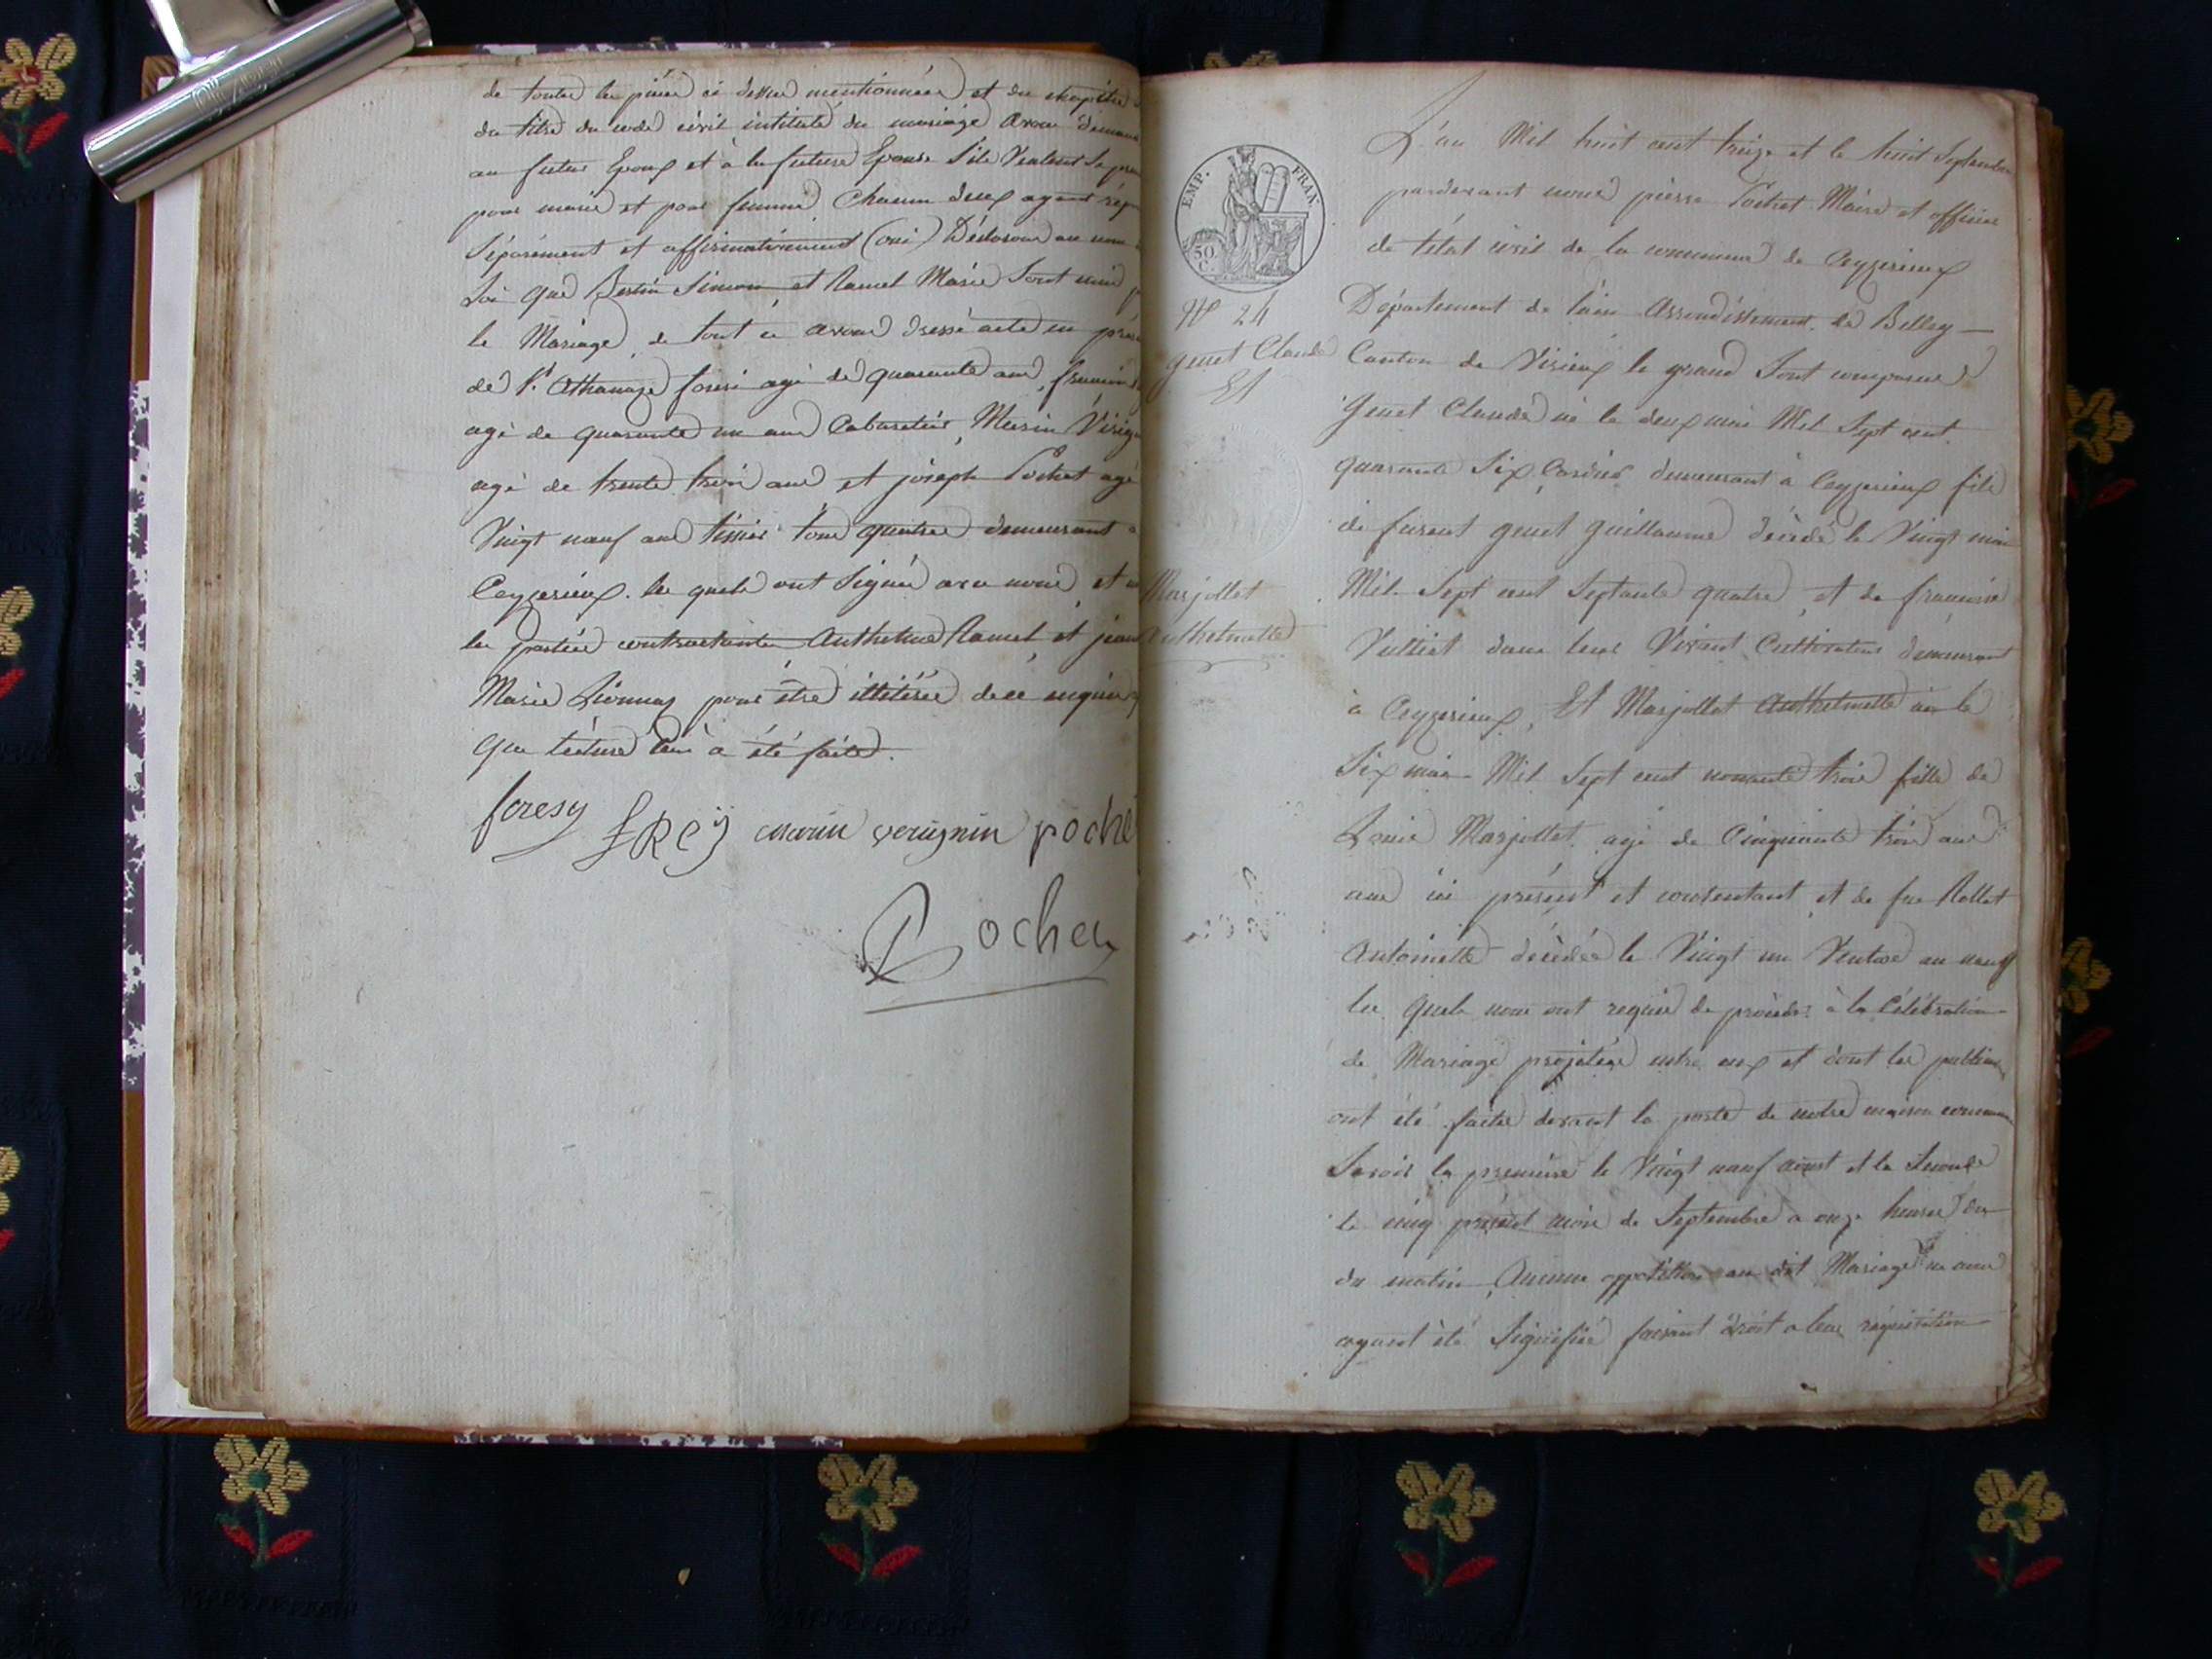 de toutes les pièces ci dessus mentionnées et du chapitre
du titre du code civil intitulé du mariage avons demandé
au futur Epoux et à la future Epouse s'ils veulent se
pour mari et pour femme chacun deux ayant
séparément et affirmativement (oui) Déclarons au nom
loi que Bertin Simon et Ramel Marie sont unis
le Mariage, de tout ce avons dressé acte en
de Athanaze foresi agé de quarante ans,
agé de quarante un ans Cabaretier, Marin
agé de trente trois ans et joseph Pochet agé
Vingt neuf ans tissier tous quatre demeurant
Ceyzerieux. les quels ont signés avec nous, et
les parties contractantes Anthelme Ramel, et jean
Marie pour être illitérés de ce enquis
que lecture leur a été faite.
foresy FREY marin verugnin poche
Pochet
EMP. FRAN.
50 C.
N° 24
genet Claude
Et
Marjollet
Anthelmette
L'an Mil huit cent treize et le huit Septembre
pardevant nous pierre Pochet Maire et officier
de l'état civil de la commune de Ceyzerieux
Département de l'ain Arrondissement de Belley
Canton de Virieux le grand Sont comparus
Genet Claude né le deux mai Mil Sept cent
quarante Six demeurant à Ceyzerieux fils
de furent genet guillaume décédé le Vingt mai
Mil Sept cent Septante quatre, et de francoise
Vulliet dans leur Vivant Cultivateurs demeurant
à Ceyzerieux, Et Marjollet Anthelmette née le
Six mai Mil Sept cent nonante trois fille de
Louis Marjollet agé de Cinquante trois ans
ans ici présent et consentant, et de fue Rollet
Antoinette décédée le Vingt un Ventose an neuf
les quels nous ont requis de procèder à la Célébration
de Mariage projetéz entre eux et dont les
ont été faites devant la porte de notre maison commune
Savoir la premiere le Vingt neuf aoust et la Seconde
le cinq présent mois de Septembre a onze heures du
du matin, Aucune oppotition au dit Mariage ne nous
ayant été Signifiée faisant droit a leur réquisition